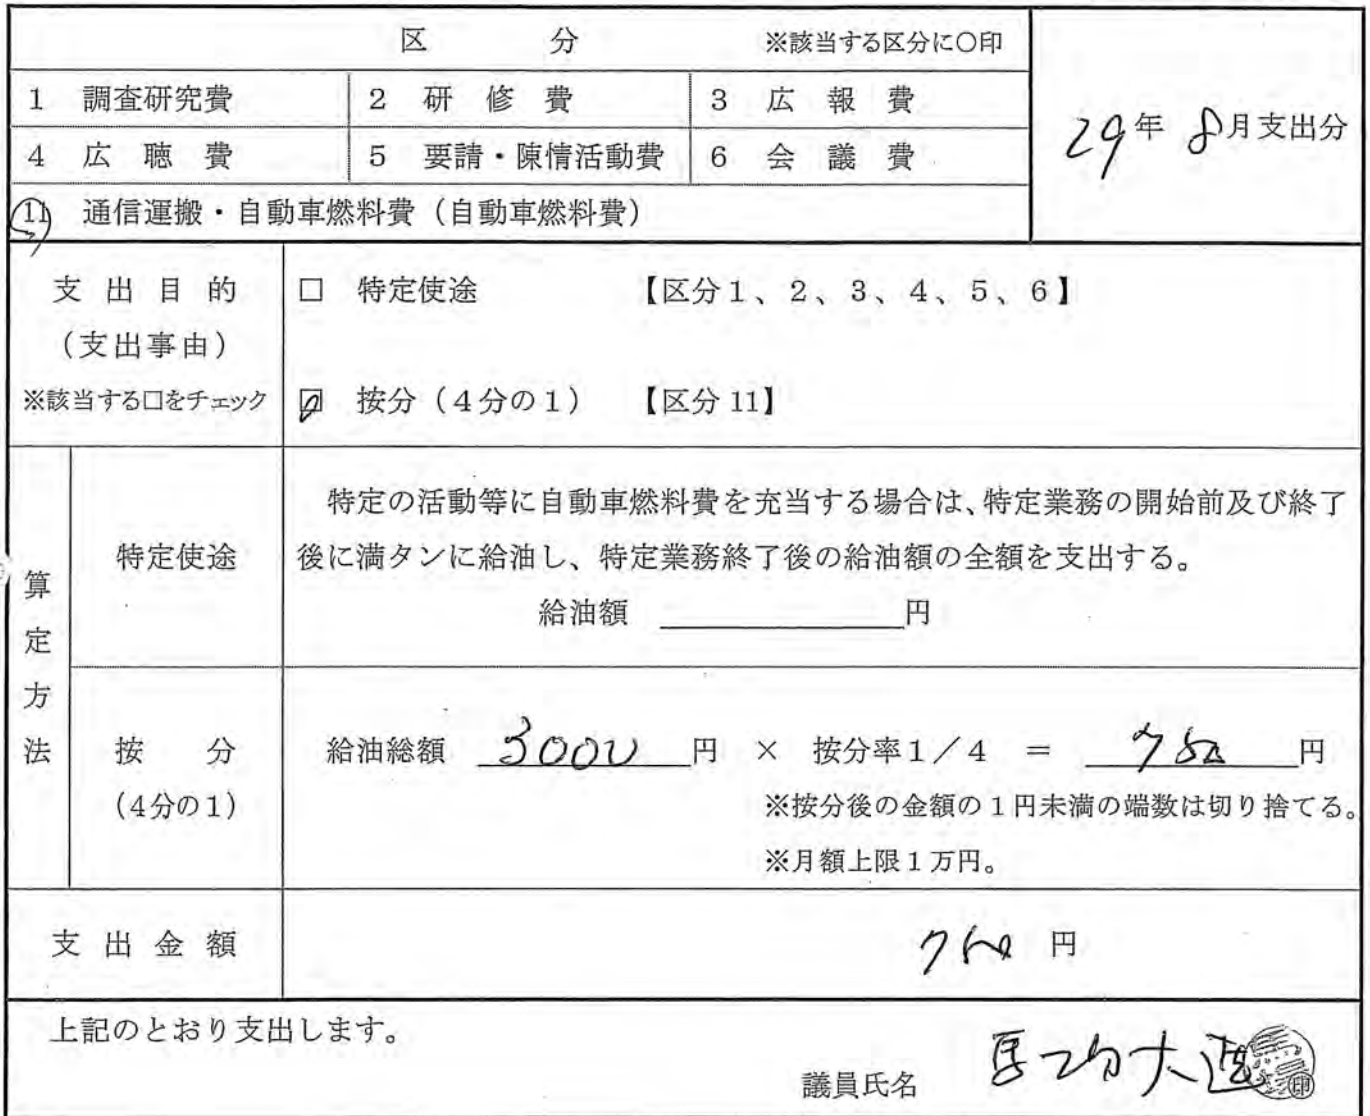 区 分 ※該当する区分に○印
1 調査研究費 2 研修費 3 広報費
29年 8月支出分
4 広聴費 5 要請・陳情活動費 6 会議費
11 通信運搬・自動車燃料費(自動車燃料費)
支出目的
(支出事由)
※該当する□をチェック
□ 特定使途 【区分1、2、3、4、5、6】
☑ 按分(4分の1) 【区分11】
算定方法
特定使途
特定の活動等に自動車燃料費を充当する場合は、特定業務の開始前及び終了
後に満タンに給油し、特定業務終了後の給油額の全額を支出する。
給油額 円
按分
(4分の1)
給油総額 3000 円 × 按分率1/4 = 750 円
※按分後の金額の1円未満の端数は切り捨てる。
※月額上限1万円。
支出金額 750 円
上記のとおり支出します。
議員氏名
印